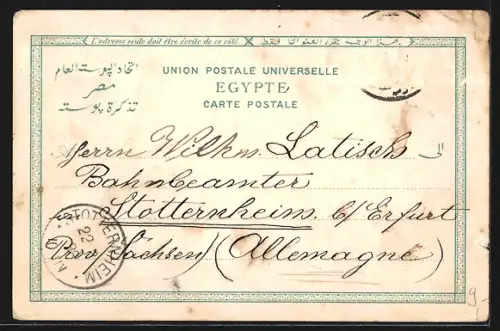 L'adresse seule doit être écrite de ce côté.
هذا الوجه يحرر العنوان فقط
اتحاد البوسته العام
مصر
تذكرة بوسته
UNION POSTALE UNIVERSELLE
EGYPTE
CARTE POSTALE
Herrn Wilhm. Latisch
Bahnbeamter
Stotternheim b/ Erfurt
(Prov. Sachsen) (Allemagne)
STOTTERNHEIM
22
9-